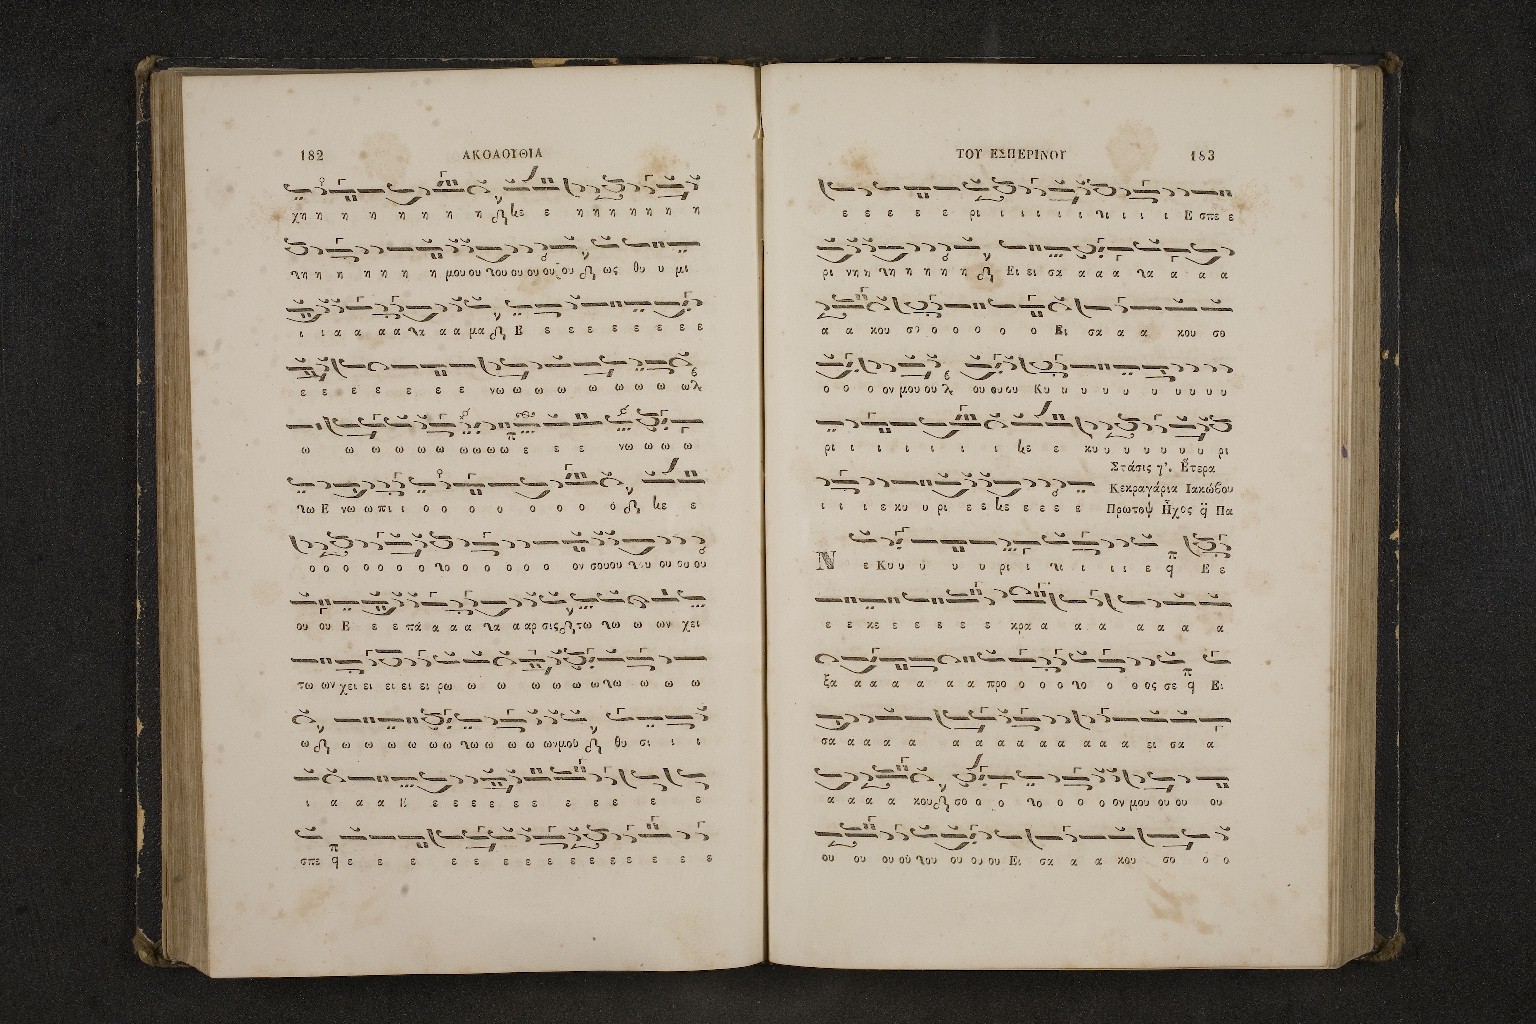 182 ΑΚΟΛΟΥΘΙΑ
χη η η η η η η η κε ε η η η η η η η
τη η η η η η η μου ου του ου ου ου ου ως θυ υ μι
ι ι α α α α τα α α μα Ε ε ε ε ε ε ε ε ε
ε ε ε ε ε ε ε νω ω ω ω ω ω ω ω ω
ω ω ω ω ω ω ω ω ω ω ε ε ε νω ω ω ω
τω Ε νω ω πι ι ο ο ο ο ο ο ο ο ό κε ε
ο ο ο ο ο ο ο το ο ο ο ο ο ον σου ου του ου ου ου
ου ου Ε ε ε πά α α α τα α αρ σις τω τω ω ων χει
τω ων χει ει ει ει ει ρω ω ω ω ω ω ω τω ω ω ω
ω ω ω ω ω ω ω τω ω ω ω ων μού θυ σι ι ι
ι α α α Ε ε ε ε ε ε ε ε ε ε ε ε
σπε ε ε ε ε ε ε ε ε ε ε ε ε ε ε ε
ΤΟΥ ΕΣΠΕΡΙΝΟΥ 183
ε ε ε ε ε ρι ι ι ι ι ι τι ι ι ι Ε σπε ε
ρι νη η τη η η η η Ει ει σα α α α τα α α α
α α κου σο ο ο ο ο ο Ει σα α α κου σο
ο ο ο ον μου ου ου ου ου Κυ υ υ υ υ υ υ υ υ υ
ρι ι ι ι ι ι ι κε ε κυ υ υ υ υ υ υ ρι
Στάσις γ'. Ἕτερα
Κεκραγάρια Ιακώβου
ι ι ι ε κυ υ ρι ε ε κε ε ε ε ε Πρωτοψ Ἦχος Πα
Ν ε Κυ υ υ υ υ ρι ι τι ι ι ι ε Ε ε
ε ε κε ε ε ε ε ε κρα α α α α α α α
ξα α α α α α α προ ο ο ο το ο ο ος σε Ει
σα α α α α α α α α α α α α α ει σα α
α α α α κου σο ο ο το ο ο ο ον μου ου ου ου
ου ου ου ού του ου ου ου Ει σα α α κου σο ο ο